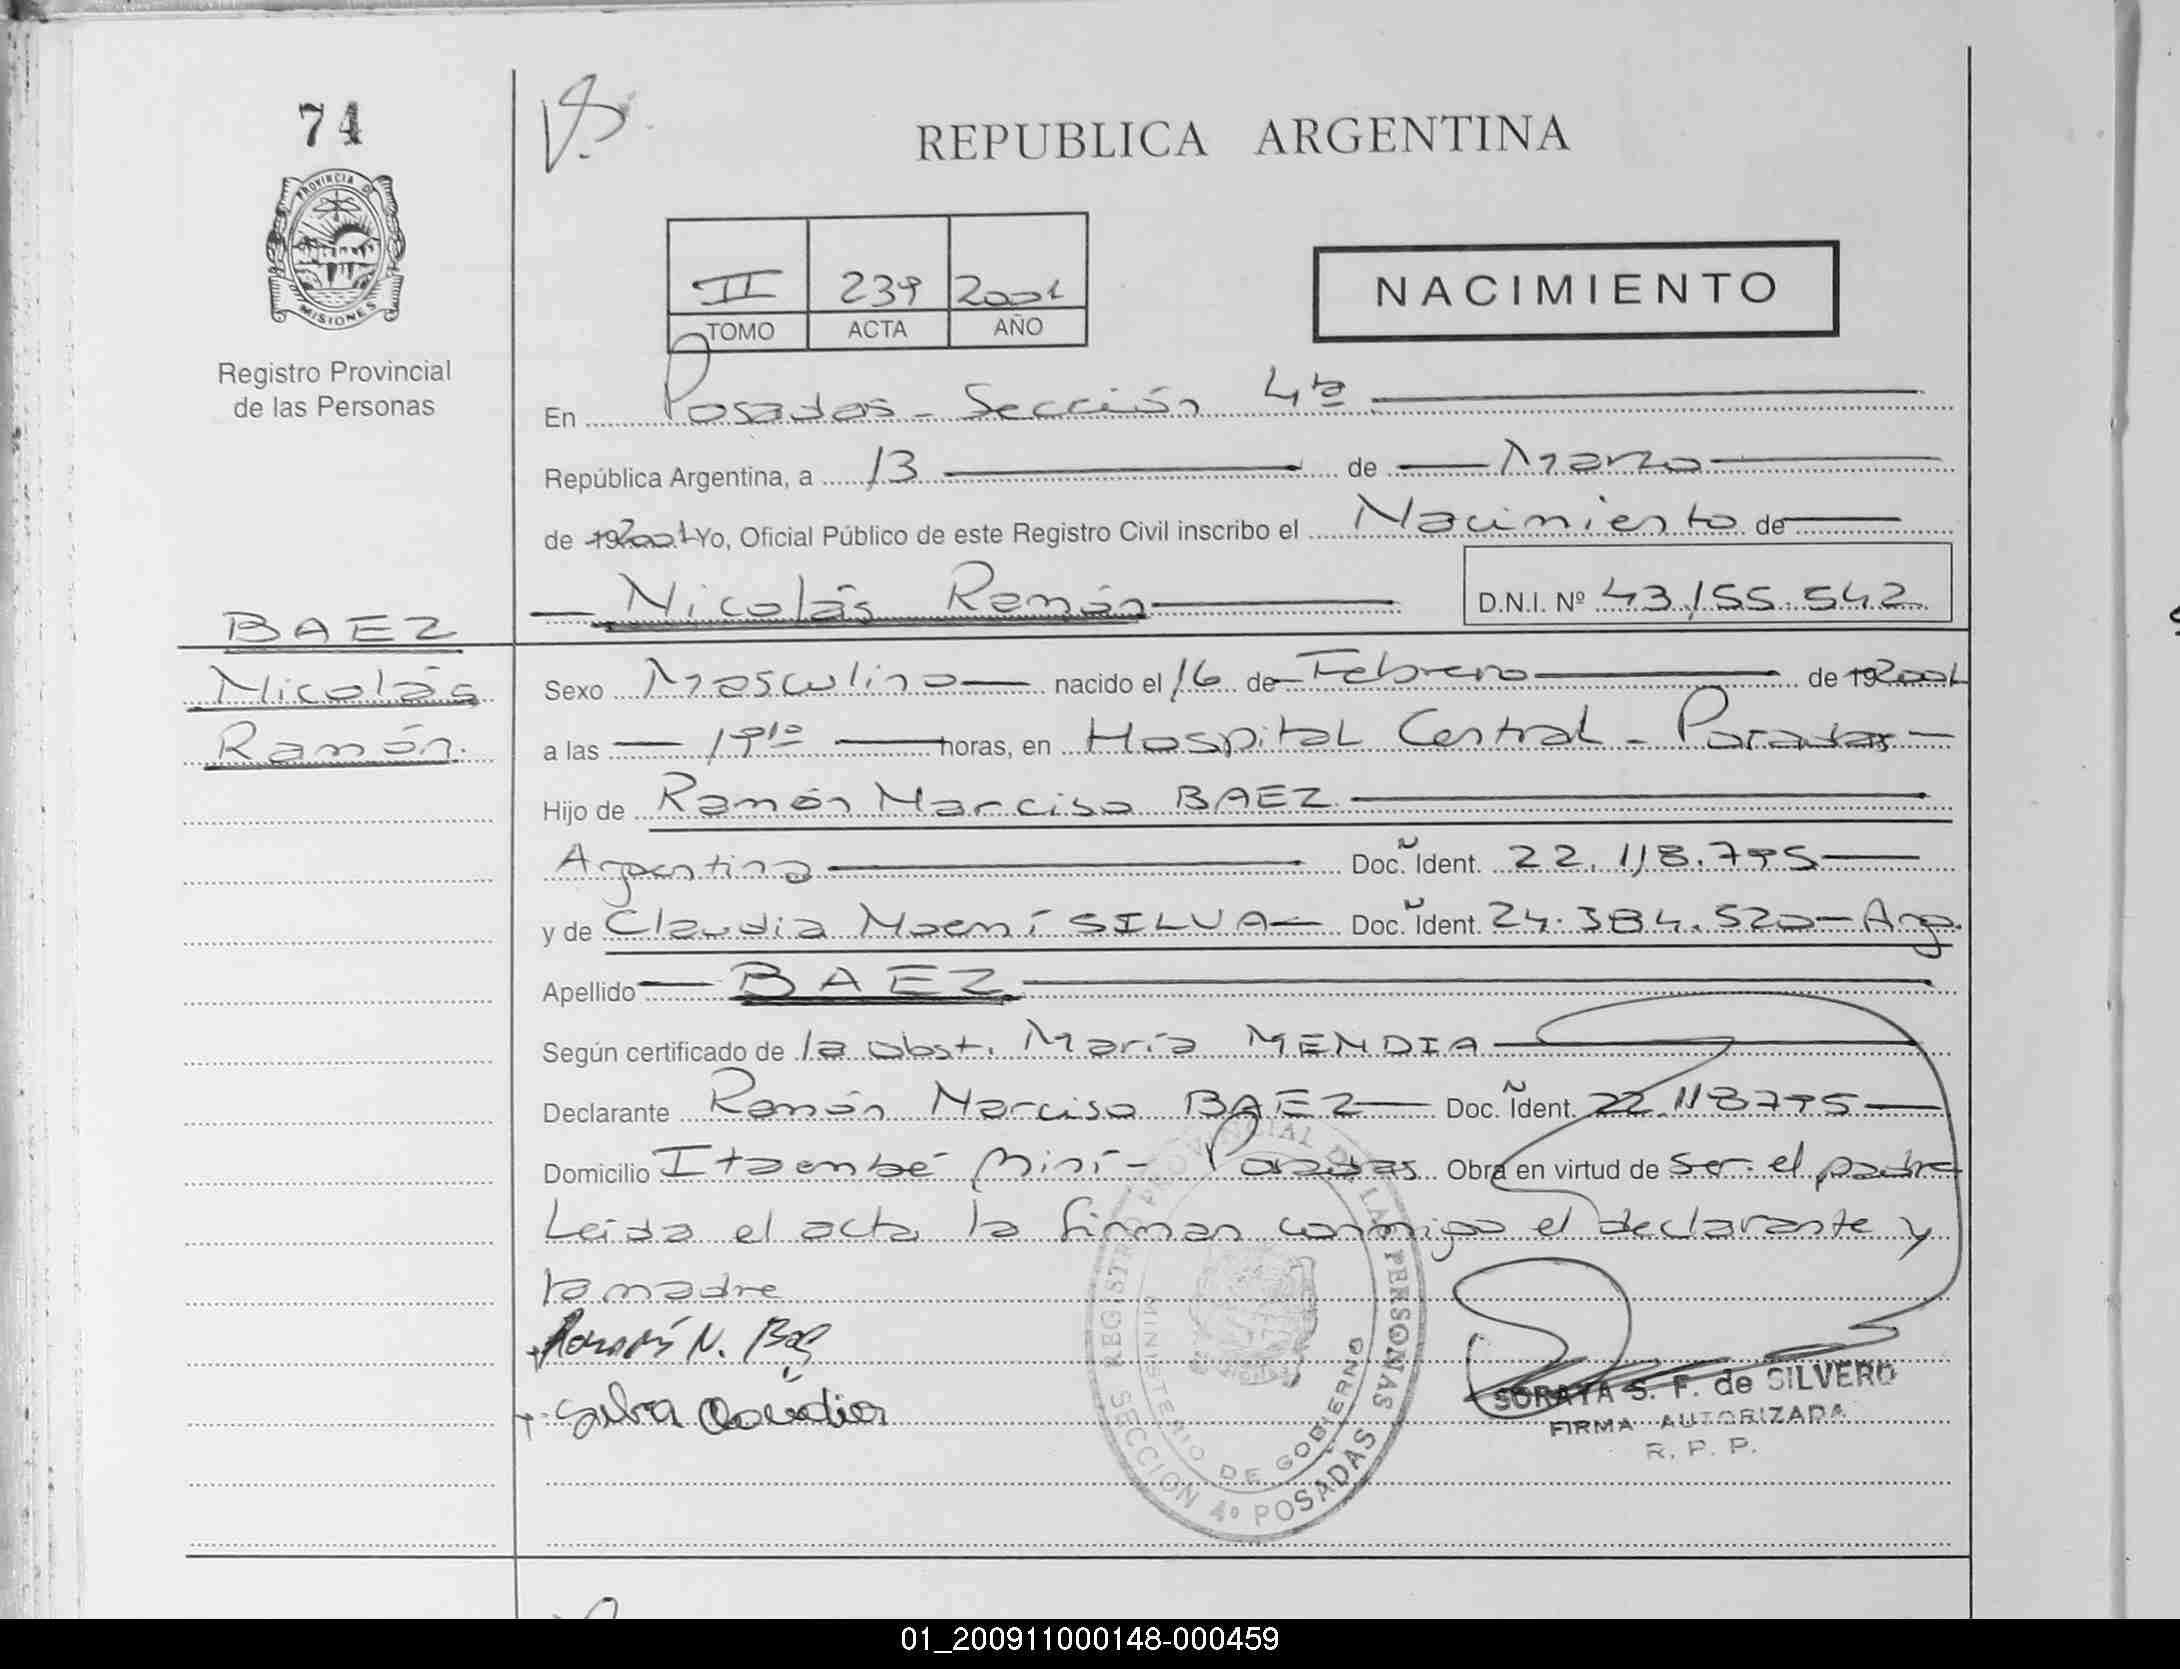 74
PROVINCIA DE
MISIONES
Registro Provincial
de las Personas
REPUBLICA ARGENTINA
II 239 2001
TOMO ACTA AÑO
NACIMIENTO
En Posadas - Sección 4ta
República Argentina, a 13 de Marzo
de 192001 Yo, Oficial Público de este Registro Civil inscribo el Nacimiento de
Nicolás Ramón D.N.I. Nº 43.155.542
BAEZ
Nicolás
Ramón.
Sexo Masculino nacido el 16 de Febrero de 192001
a las 19:10 horas, en Hospital Central - Posadas
Hijo de Ramón Narciso BAEZ
Argentina Doc. Ident. 22.118.795
y de Claudia Noemí SILVA Doc. Ident. 24.384.520 - Arg.
Apellido BAEZ
Según certificado de la obst. María MENDIA
Declarante Ramón Narciso BAEZ Doc. Ident. 22.118795
Domicilio Itaembé Miní - Posadas Obra en virtud de ser el padre
Leída el acta, la firman conmigo el declarante y
la madre
Ramón N. Baez
Silva Claudia
REGISTRO PROVINCIAL DE LAS PERSONAS
MINISTERIO DE GOBIERNO
SECCION 4º POSADAS
SORAYA S. F. de SILVERO
FIRMA AUTORIZADA
R. P. P.
01_200911000148-000459